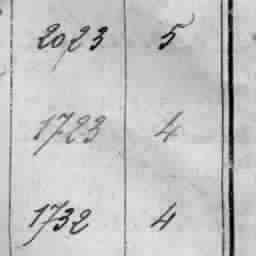 2023 5
1723 4
1732 4